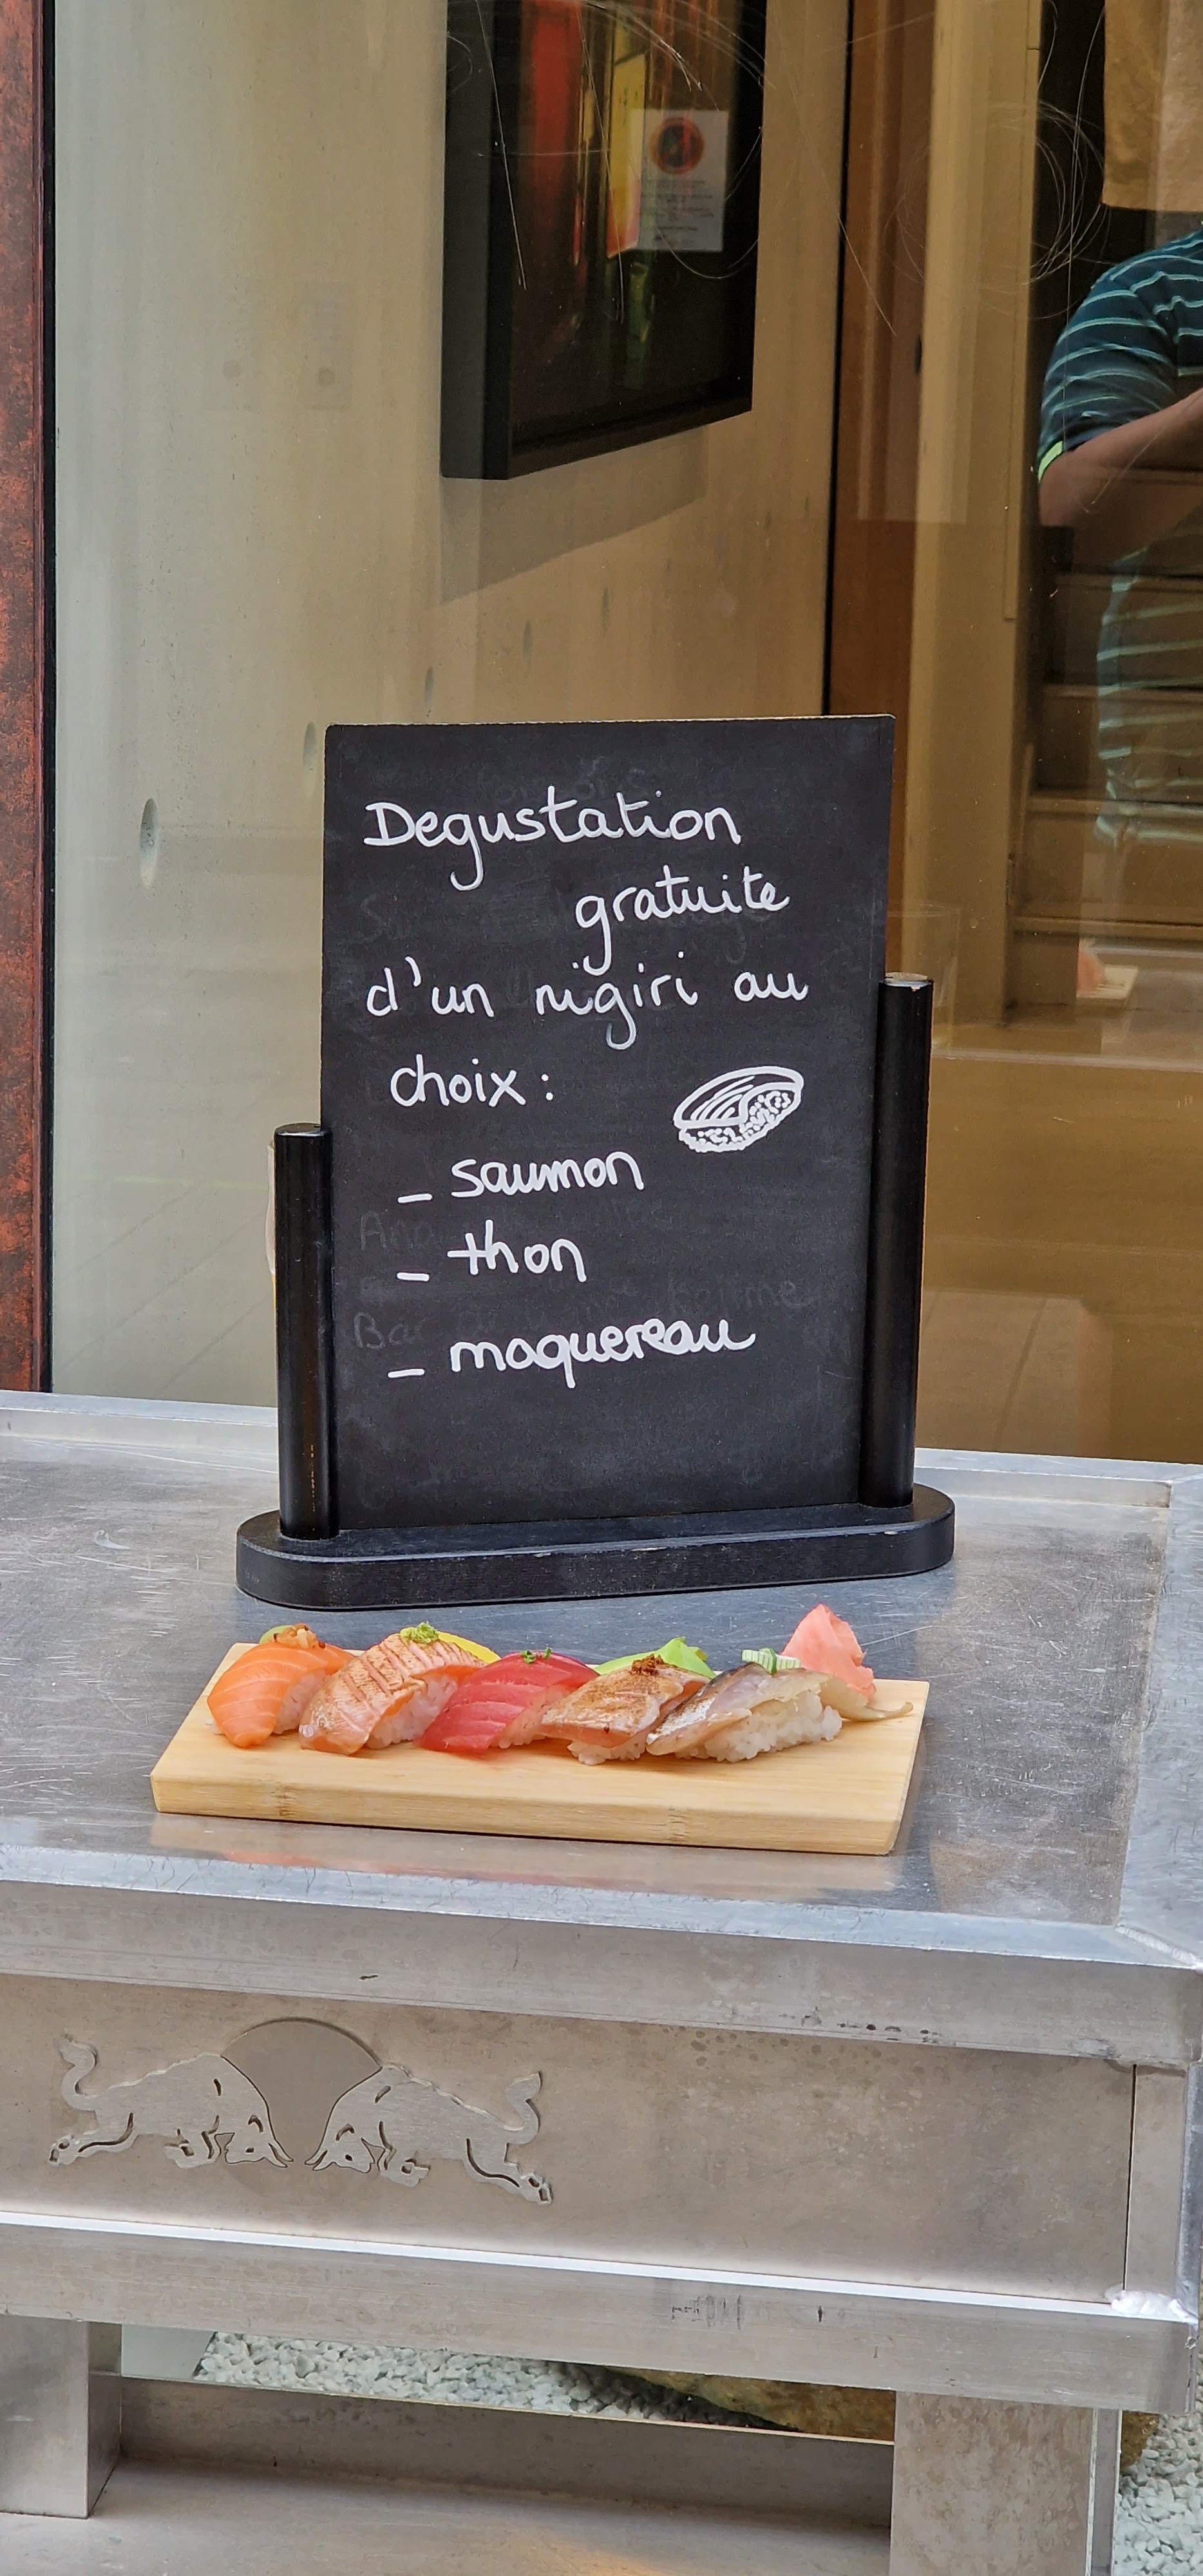 Degustation
gratuite
d'un nigiri au
choix :
_ saumon
_ thon
_ maquereau